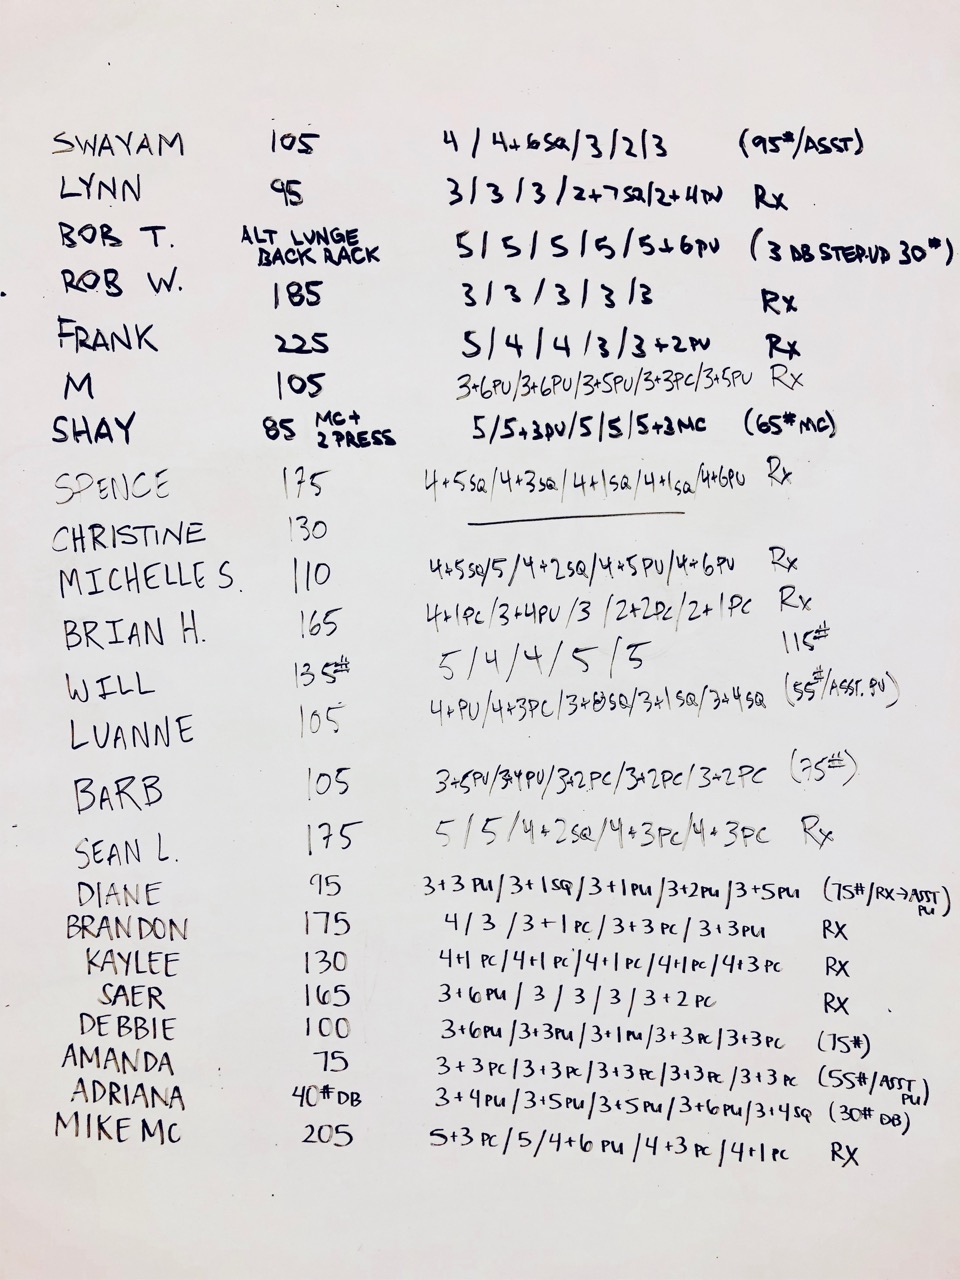 SWAYAM 105 4 / 4+6SQ/3/2/3 (95#/ASST)
LYNN 95 3/3/3/2+7SQ/2+4PU Rx
BOB T. ALT LUNGE BACK RACK 5/5/5/5/5+6PU (3 DB STEP-UP 30#)
ROB W. 185 3/3/3/3/3 Rx
FRANK 225 5/4/4/3/3+2PU Rx
M 105 3+6PU/3+6PU/3+5PU/3+3PC/3+5PU Rx
SHAY 85 MC+ 2 PRESS 5/5+3PU/5/5/5+3MC (65# MC)
SPENCE 175 4+5SQ/4+3SQ/4+1SQ/4+1SQ/4+6PU Rx
CHRISTINE 130 —
MICHELLE S. 110 4+5SQ/5/4+2SQ/4+5PU/4+6PU Rx
BRIAN H. 165 4+1PC/3+4PU/3/2+2PC/2+1PC Rx
WILL 135# 5/4/4/5/5 115#
LUANNE 105 4+PU/4+3PC/3+8SQ/3+1SQ/3+4SQ (55#/ASST. PU)
BARB 105 3+5PU/3+4PU/3+2PC/3+2PC/3+2PC (75#)
SEAN L. 175 5/5/4+2SQ/4+3PC/4+3PC Rx
DIANE 95 3+3PU/3+1SQ/3+1PU/3+2PU/3+5PU (75#/RX→ASST PU)
BRANDON 175 4/3/3+1PC/3+3PC/3+3PU RX
KAYLEE 130 4+1PC/4+1PC/4+1PC/4+1PC/4+3PC RX
SAER 165 3+6PU/3/3/3/3+2PC RX
DEBBIE 100 3+6PU/3+3PU/3+1PU/3+3PC/3+3PC (75#)
AMANDA 75 3+3PC/3+3PC/3+3PC/3+3PC/3+3PC (55#/ASST PU)
ADRIANA 40# DB 3+4PU/3+5PU/3+5PU/3+6PU/3+4SQ (30# DB)
MIKE MC 205 5+3PC/5/4+6PU/4+3PC/4+1PC RX